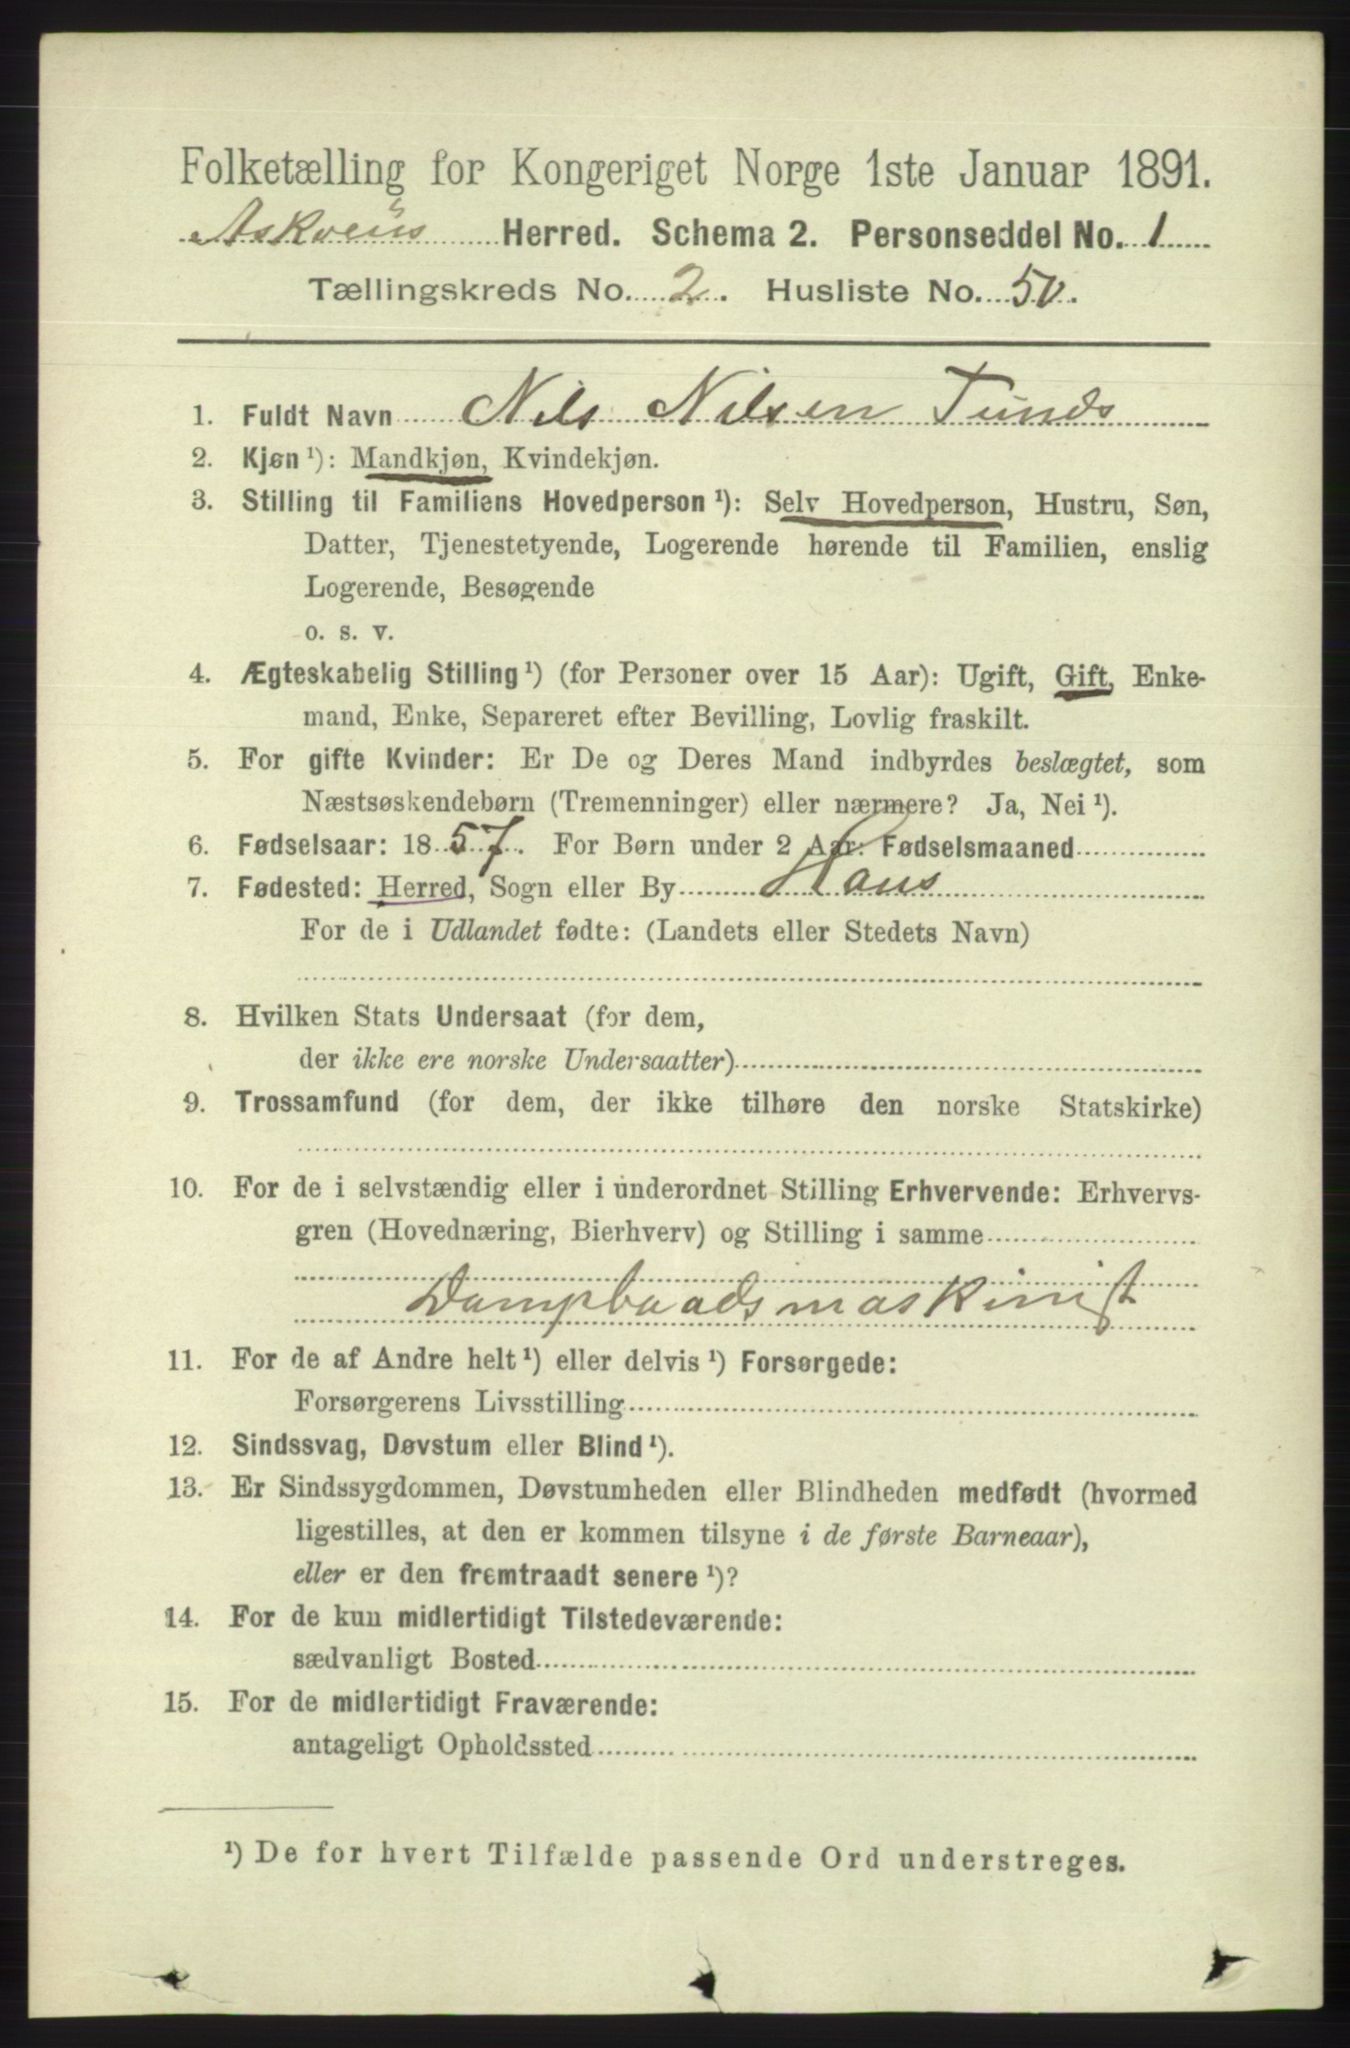 Folketælling for Kongeriget Norge 1ste Januar 1891.
Askvens Herred. Schema 2. Personseddel No. 1
Tællingskreds No. 2. Husliste No. 50.
1. Fuldt Navn Nils Nilsen Tunds
2. Kjøn¹): Mandkjøn, Kvindekjøn.
3. Stilling til Familiens Hovedperson¹): Selv Hovedperson, Hustru, Søn,
Datter, Tjenestetyende, Logerende hørende til Familien, enslig
Logerende, Besøgende
o. s. v.
4. Ægteskabelig Stilling¹) (for Personer over 15 Aar): Ugift, Gift, Enke-
mand, Enke, Separeret efter Bevilling, Lovlig fraskilt.
5. For gifte Kvinder: Er De og Deres Mand indbyrdes beslægtet, som
Næstsøskendebørn (Tremenninger) eller nærmere? Ja, Nei¹).
6. Fødselsaar: 1857. For Børn under 2 Aar: Fødselsmaaned
7. Fødested: Herred, Sogn eller By Haus
For de i Udlandet fødte: (Landets eller Stedets Navn)
8. Hvilken Stats Undersaat (for dem,
der ikke ere norske Undersaatter)
9. Trossamfund (for dem, der ikke tilhøre den norske Statskirke)
10. For de i selvstændig eller i underordnet Stilling Erhvervende: Erhvervs-
gren (Hovednæring, Bierhverv) og Stilling i samme
Dampbaadsmaskinist
11. For de af Andre helt¹) eller delvis¹) Forsørgede:
Forsørgerens Livsstilling
12. Sindssvag, Døvstum eller Blind¹).
13. Er Sindssygdommen, Døvstumheden eller Blindheden medfødt (hvormed
ligestilles, at den er kommen tilsyne i de første Barneaar),
eller er den fremtraadt senere¹)?
14. For de kun midlertidigt Tilstedeværende:
sædvanligt Bosted
15. For de midlertidigt Fraværende:
antageligt Opholdssted
¹) De for hvert Tilfælde passende Ord understreges.